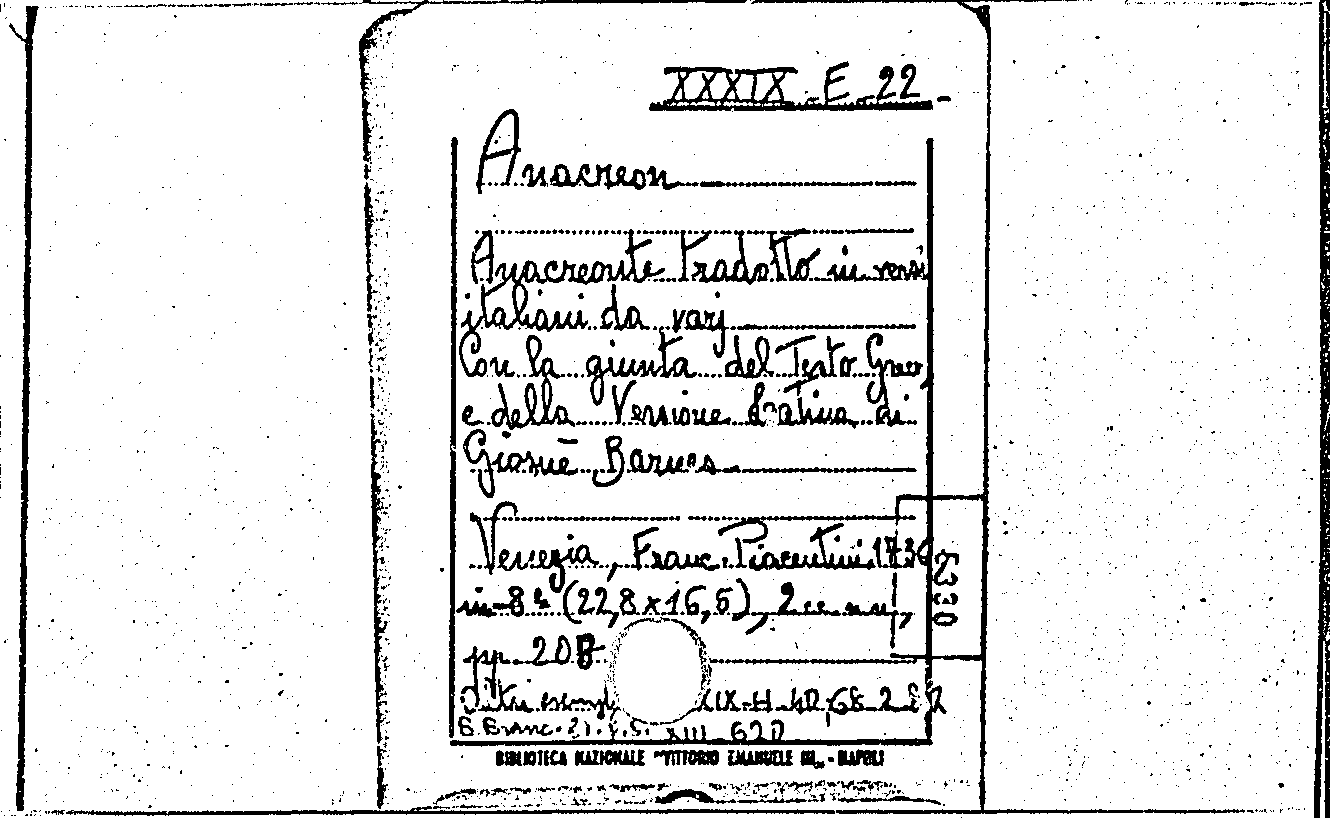 XXXIX. E. 22
Anacreon
Anacreonte tradotto in versi
italiani da varj
Con la giunta del Testo Greco,
e della Versione Latina di
Giosuè Barnes.
Venezia, Franc. Piacentini. 1736
in-8° (22,8 x 16,5), 2 cc. nn.,
pp. 208
Altri esempl
B. Branc.
BIBLIOTECA NAZIONALE "VITTORIO EMANUELE III„ - NAPOLI